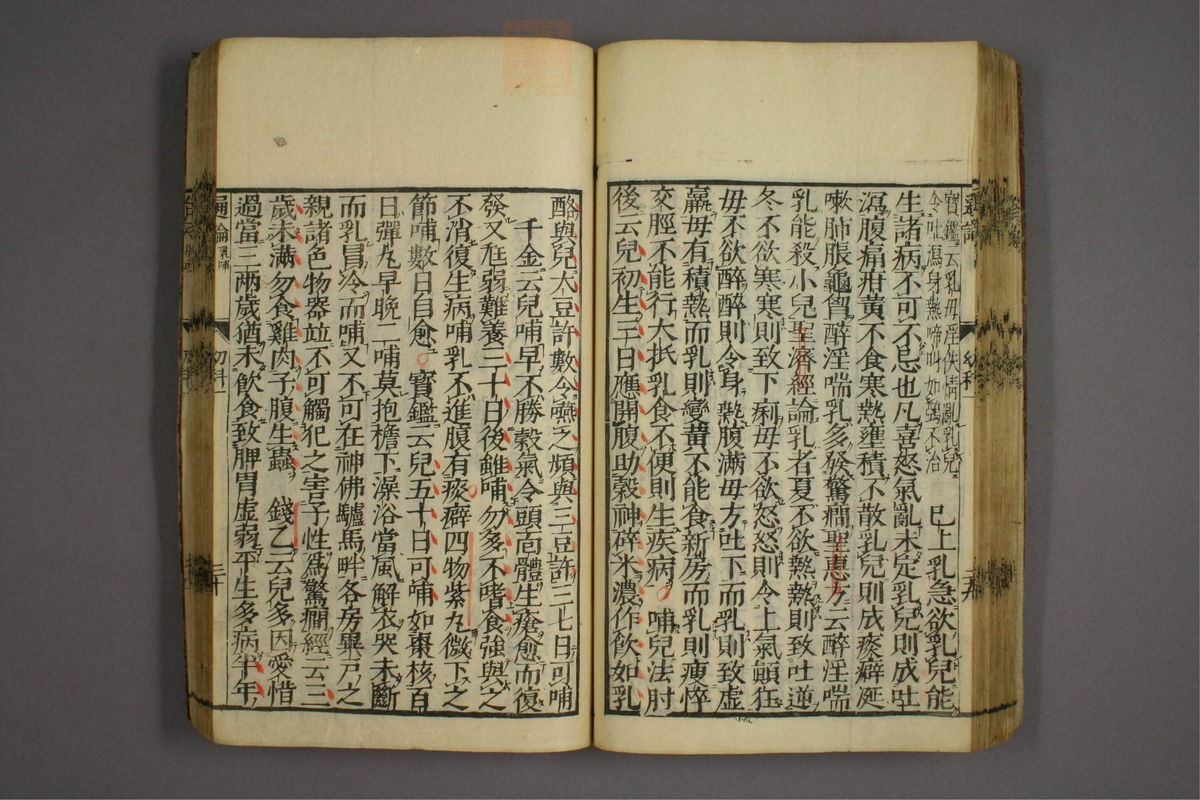 寶鑑云乳母淫佚情亂乳兒
令吐瀉身熱啼叫如鵶不治
已上乳急欲乳兒能
生諸病不可不忌也凡喜怒氣亂未定乳兒則成吐
瀉腹痛疳黃不食寒熱壅積不散乳兒則成痰癖涎
嗽肺脹龜胷醉淫喘乳多發驚癎聖惠方云醉淫喘
乳能殺小兒聖濟經論乳者夏不欲熱熱則致吐逆
冬不欲寒寒則致下痢毋不欲怒怒則令上氣顛狂
毋不欲醉醉則令身熱腹滿毋方吐下而乳則致虛
羸毋有積熱而乳則變黃不能食新房而乳則瘦悴
交脛不能行大抵乳食不便則生疾病 哺兒法肘
後云兒初生三日應開腹助穀神碎米濃作飲如乳
酪與兒大豆許數令嚥之頻與三豆許三七日可哺
千金云兒哺早不勝穀氣令頭面體生瘡愈而復
發又尫弱難養三十日後雖哺勿多不嗜食強與之
不消復生病哺乳不進腹有痰癖四物紫丸微下之
節哺數日自愈 寶鑑云兒五十日可哺如棗核百
日彈丸早晚二哺莫抱檐下澡浴當風解衣哭未斷
而乳冒冷而哺又不可在神佛驢馬畔各房異戶之
親諸色物器並不可觸犯之害子性爲驚癎經云三
歲未滿勿食雞肉子腹生蟲 錢乙云兒多因愛惜
過當三兩歲猶未飲食致脾胃虛弱平生多病半年
通論 乳哺
幼科一
三十